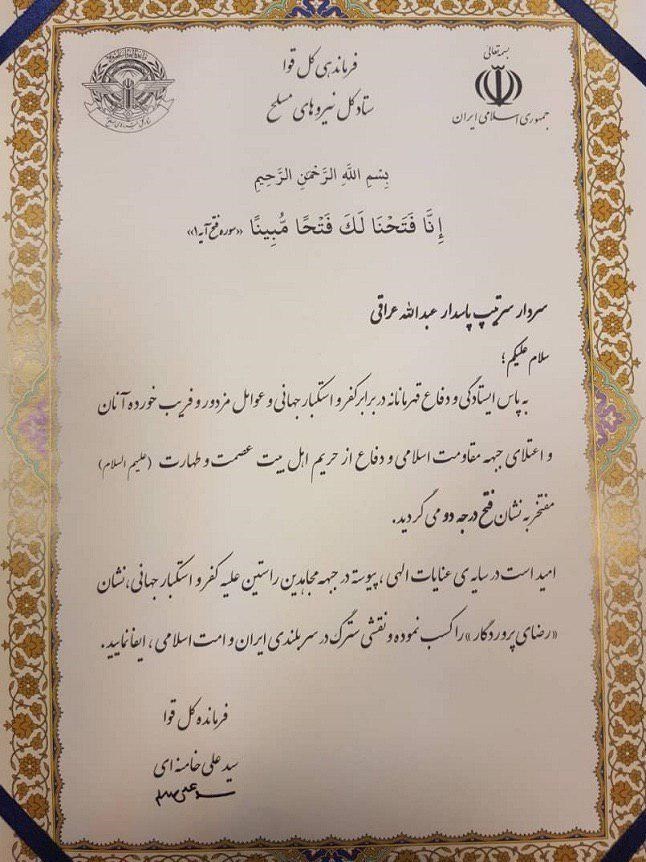 بسمه تعالی
جمهوری اسلامی ایران
فرماندهی کل قوا
ستاد کل نیروهای مسلح
بِسْمِ اللَّهِ الرَّحْمَنِ الرَّحِیمِ
إِنَّا فَتَحْنَا لَكَ فَتْحًا مُّبِينًا «سوره فتح آیه ۱»
سردار سرتیپ پاسدار عبدالله عراقی
سلام علیکم؛
به پاس ایستادگی و دفاع قهرمانانه در برابر کفر و استکبار جهانی و عوامل مزدور و فریب خورده آنان
و اعتلای جبهه مقاومت اسلامی و دفاع از حریم اهل بیت عصمت و طهارت (علیهم السلام)
مفتخر به نشان فتح درجه دو می گردید.
امید است در سایه ی عنایات الهی، پیوسته در جبهه مجاهدین راستین علیه کفر و استکبار جهانی، نشان
«رضای پروردگار» را کسب نموده و نقشی سترگ در سربلندی ایران و امت اسلامی، ایفا نمایید.
فرمانده کل قوا
سید علی خامنه ای